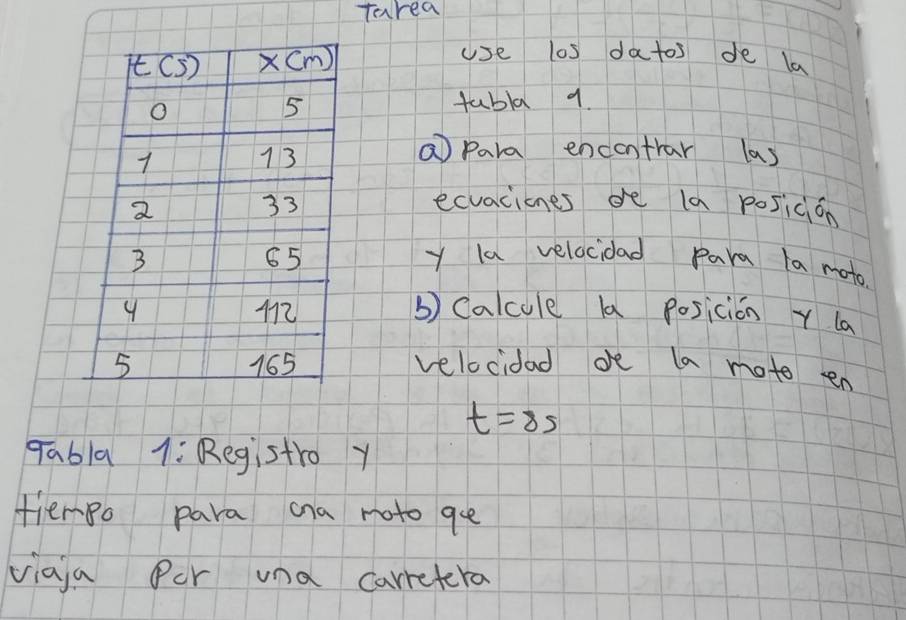 Tarea
t(s) x(m)
0 5
1 13
2 33
3 65
4 112
5 165
use los datos de la
tabla 1.
a) Para encontrar las
ecuaciones de la posición
y la velocidad para la moto.
b) Calcule la posición y la
velocidad de la moto en
t=8s
Tabla 1: Registro y
tiempo para una moto que
viaja Por una carretera